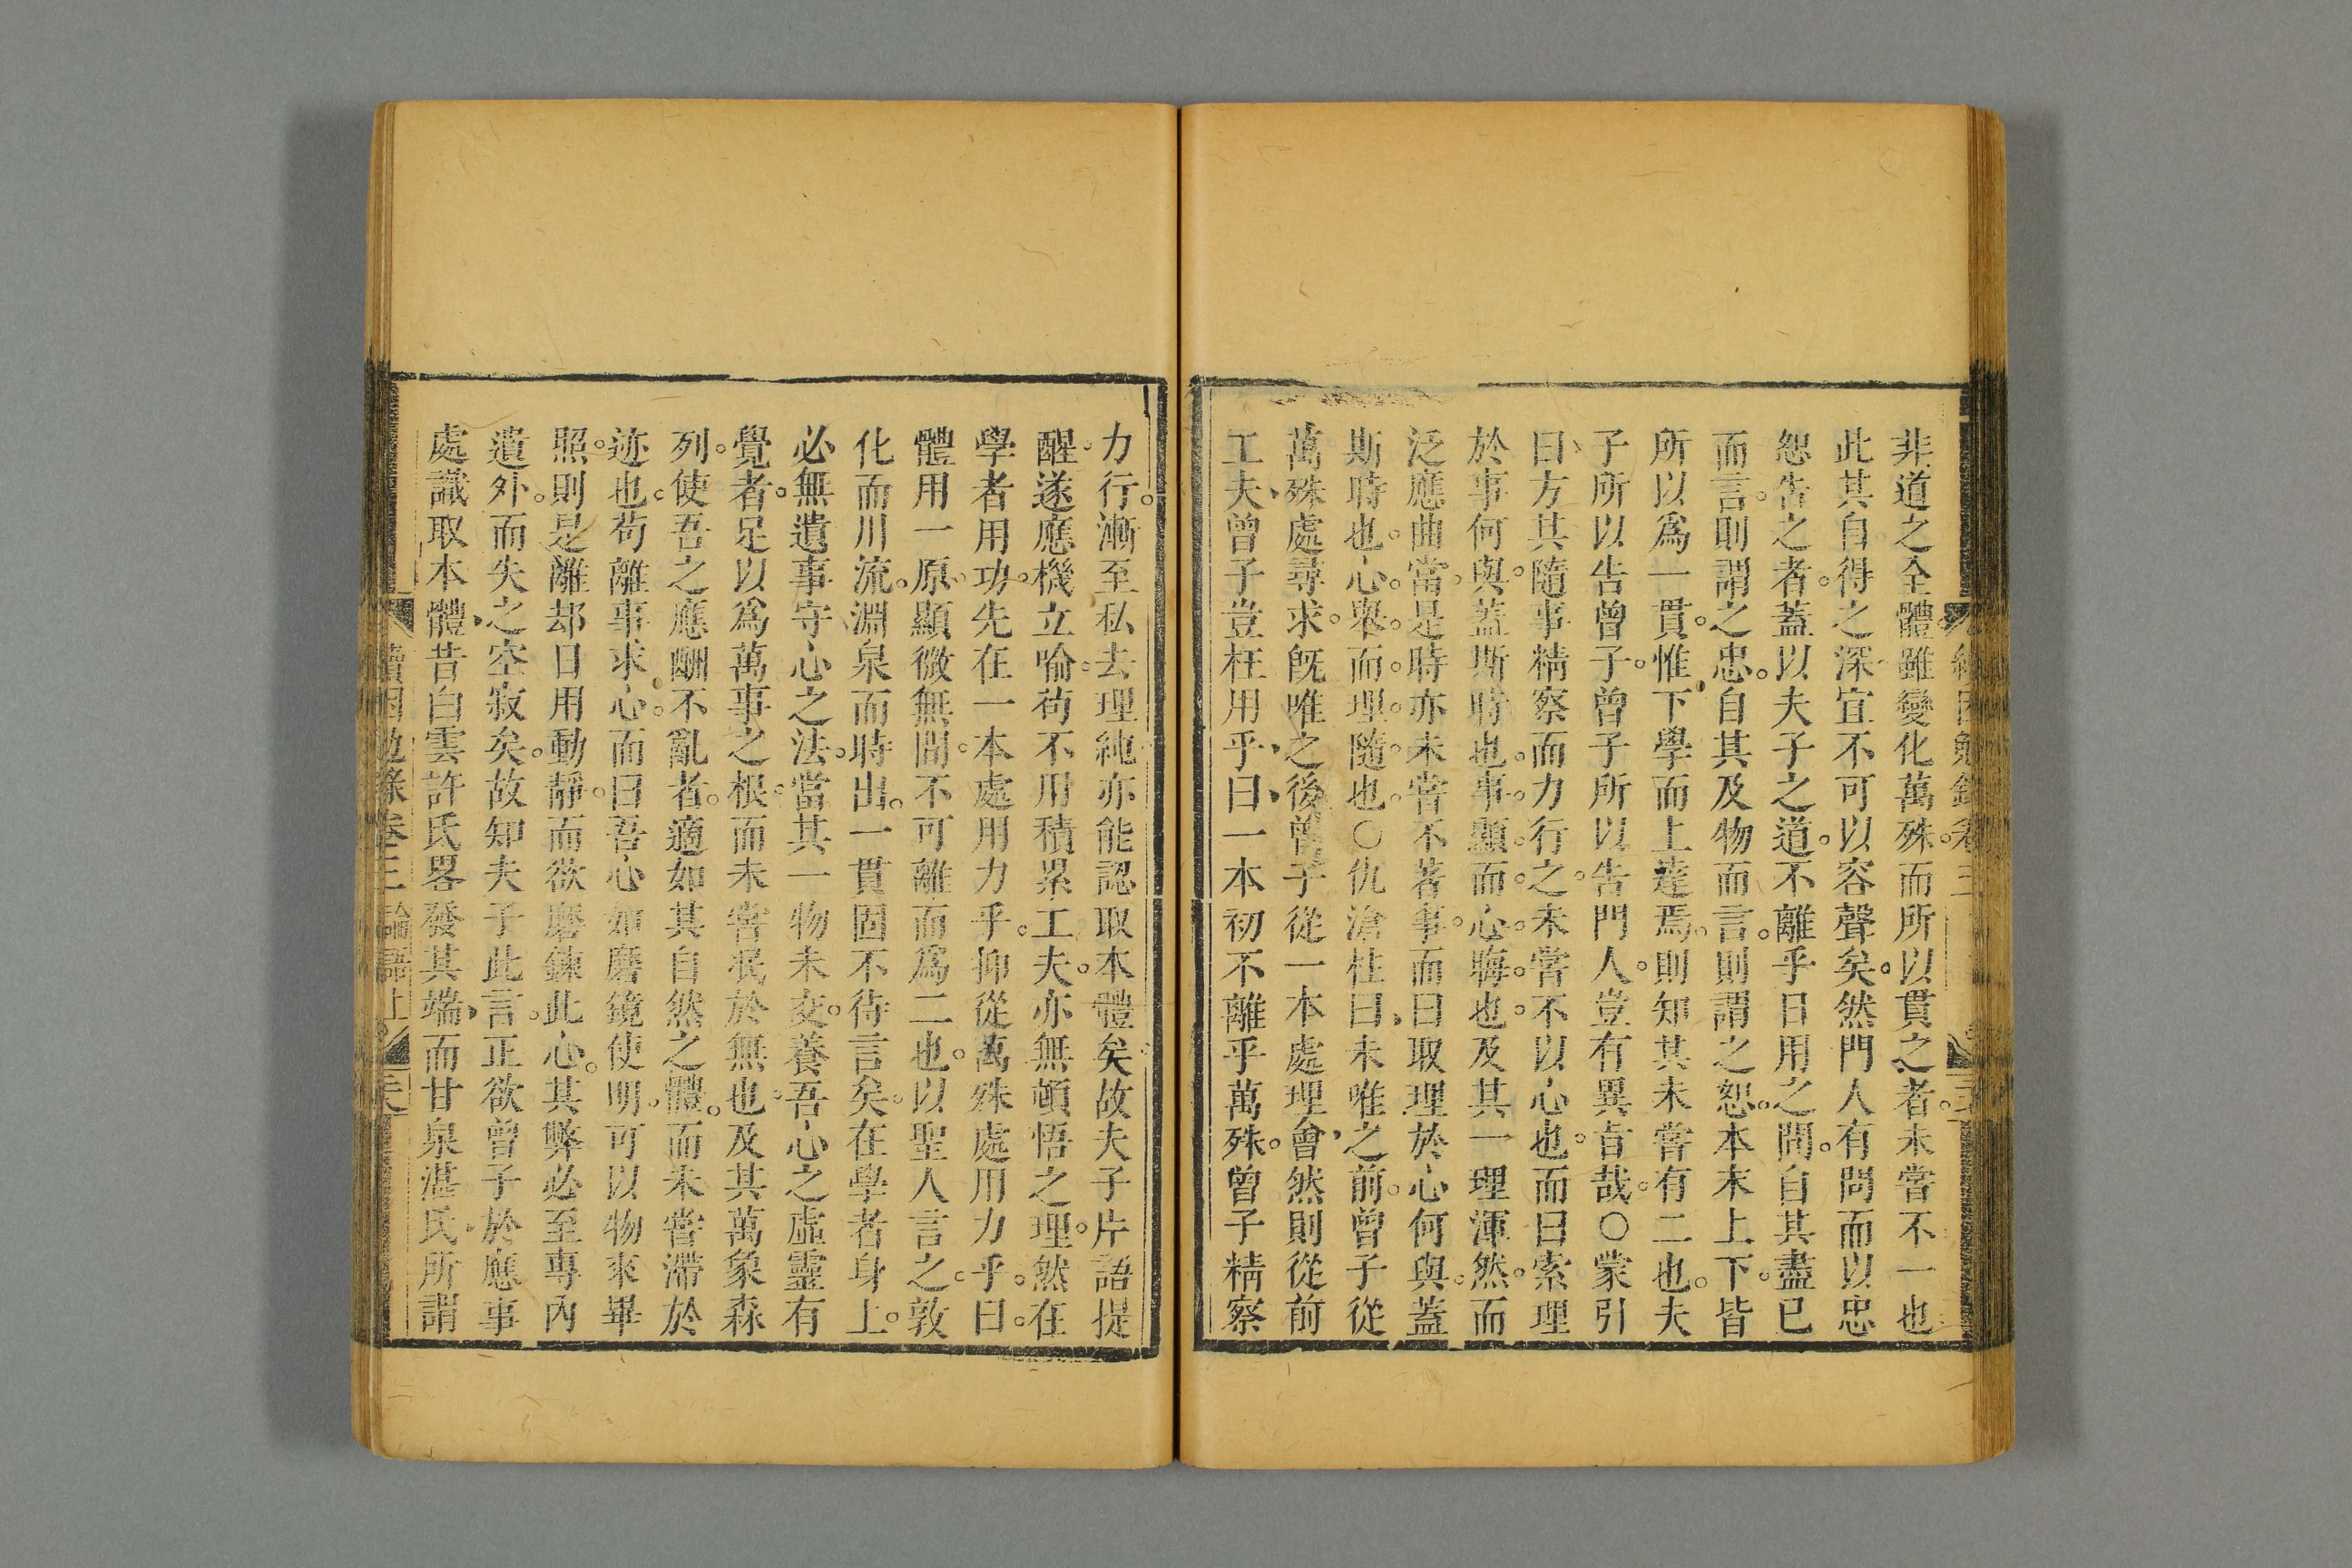 非道之全體雖變化萬殊而所以貫之者未嘗不一也
此其自得之深宜不可以容聲矣然門人有問而以忠
恕告之者蓋以夫子之道不離乎日用之間自其盡已
而言則謂之忠自其及物而言則謂之恕本末上下皆
所以爲一貫惟下學而上達焉則知其未嘗有二也夫
子所以告曾子曾子所以告門人豈有異旨哉○蒙引
曰方其隨事精察而力行之未嘗不以心也而曰索理
於事何與蓋斯時也事顯而心晦也及其一理渾然而
泛應曲當是時亦未嘗不著事而曰取理於心何與蓋
斯時也心舉而理隨也○仇滄柱曰未唯之前曾子從
萬殊處尋求旣唯之後曾子從一本處理會然則從前
工夫曾子豈枉用乎曰一本初不離乎萬殊曾子精察
力行漸至私去理純亦能認取本體矣故夫子片語提
醒遂應機立喻苟不用積累工夫亦無頓悟之理然在
學者用功先在一本處用力乎抑從萬殊處用力乎曰
體用一原顯微無間不可離而爲二也以聖人言之敦
化而川流淵泉而時出一貫固不待言矣在學者身上
必無遺事守心之法當其一物未交養吾心之虛靈有
覺者足以爲萬事之根而未嘗泯於無也及其萬象森
列使吾之應酬不亂者適如其自然之體而未嘗滯於
迹也苟離事求心而曰吾心如磨鏡使明可以物來畢
照則是離却日用動靜而欲磨鍊此心其弊必至專內
遺外而失之空寂矣故知夫子此言正欲曾子於應事
處識取本體昔白雲許氏畧發其端而甘泉湛氏所謂
續困勉錄卷三 論語上